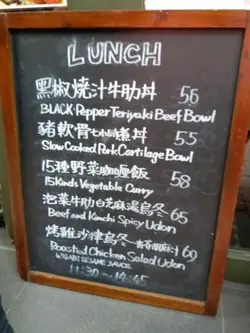 LUNCH
黑椒燒汁牛肋丼 56
BLACK Pepper Teriyaki Beef Bowl
豬軟骨 丼 55
Slow Cooked Pork Cartilage Bowl
15種野菜咖喱飯 58
15 Kinds Vegetable Curry
泡菜牛肋白芝麻湯烏冬 65
Beef and Kimchi Spicy Udon
烤雞沙律烏冬 胡麻汁 60
Roasted Chicken Salad Udon
WASABI SESAME SAUCE
11:30 ~ 14:45